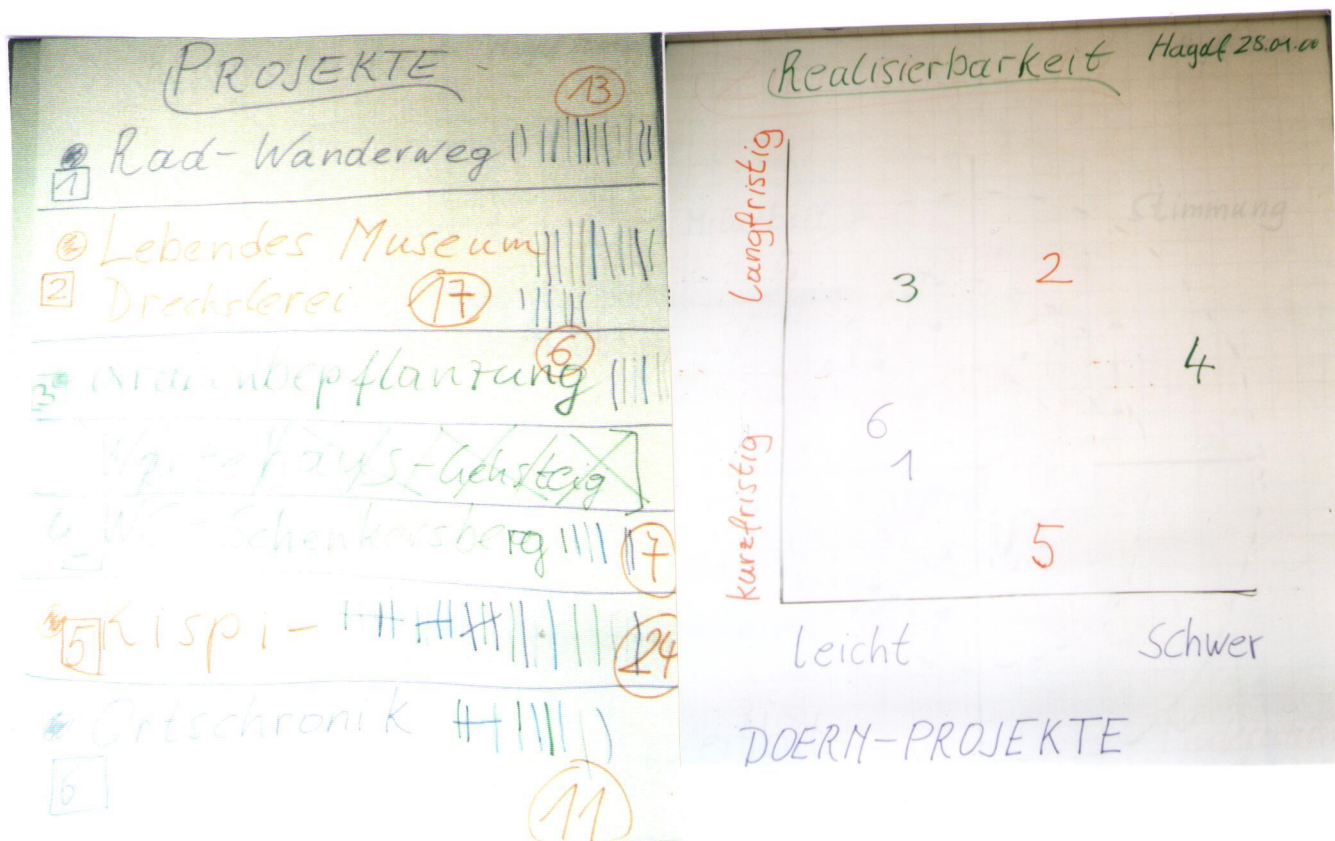 PROJEKTE
13
1 Rad-Wanderweg
Lebendes Museum
2 Drechslerei 17
6
3
Wartehaus-Gehsteig
WC-Schenkersberg 7
5 Kispi- 24
Ortschronik
6
11
Realisierbarkeit
Langfristig
kurzfristig
Stimmung
3
2
4
6
1
5
leicht
Schwer
DOERN-PROJEKTE